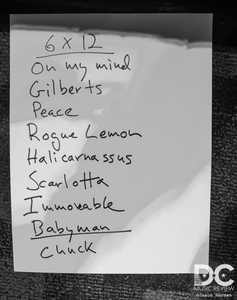 6 x 12
On my mind
Gilberts
Peace
Rogue Lemon
Halicarnassus
Scarlotta
Immoveable
Babyman
Chuck
DC
MUSIC REVIEW